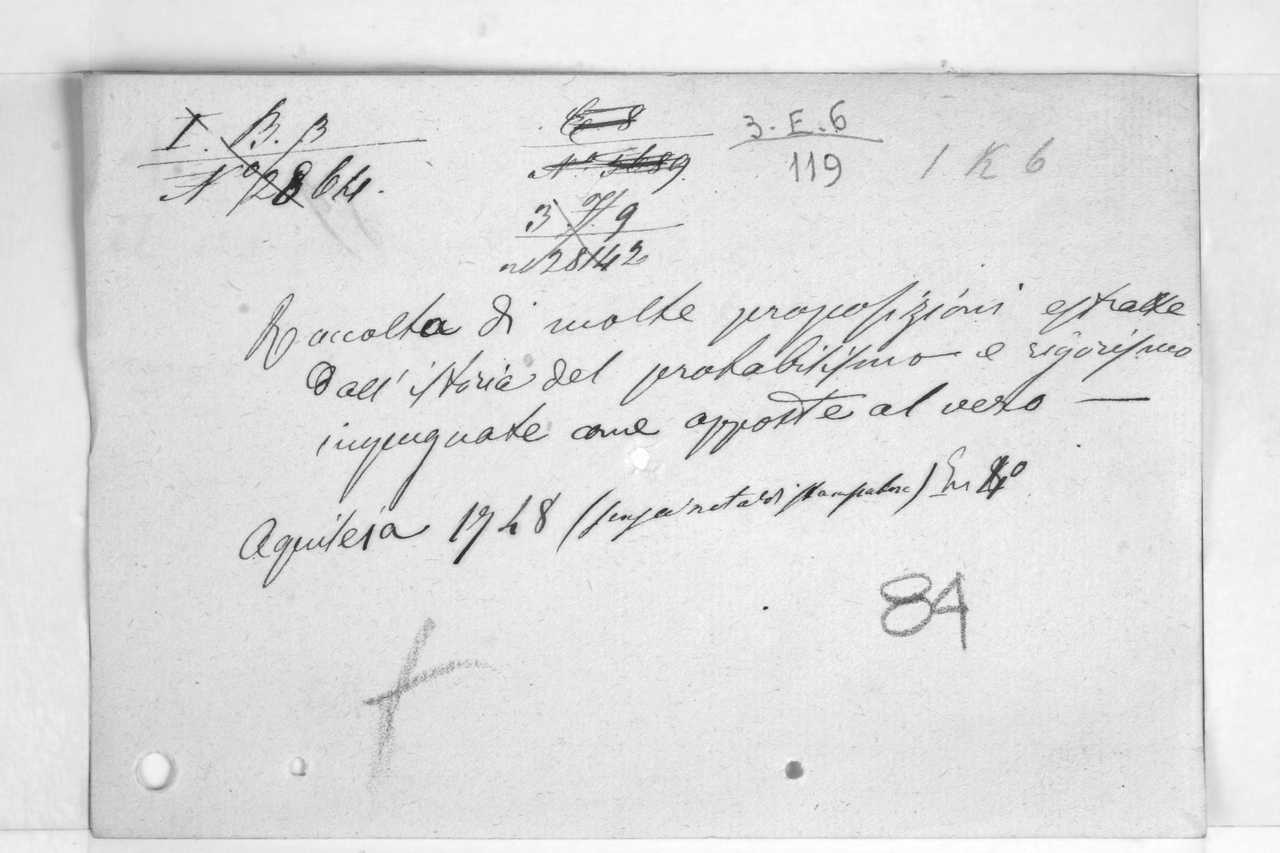 I. B. 3
N° 2864.
E 8
N° 5689
3. H. 9
n° 28142
3. E. 6
119
1 K 6
Raccolta di molte proposizioni estratte
Dall' istoria del probabilismo e rigorismo
impugnate come opposte al vero —
Aquileia 1748 (senza nota di stampatore) In 4°
84